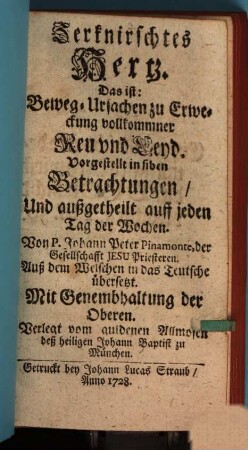 Zerknirschtes
Hertz.
Das ist:
Beweg-Ursachen zu Erwe-
ckung vollkommner
Reu vnd Leyd.
Vorgestellt in siben
Betrachtungen /
Und außgetheilt auff jeden
Tag der Wochen.
Von P. Johann Peter Pinamonte, der
Gesellschafft JESU Priesteren.
Auß dem Welschen in das Teutsche
übersetzt.
Mit Genembhaltung der
Oberen.
Verlegt vom guldenen Allmosen
deß heiligen Johann Baptist zu
München.
Getruckt bey Johann Lucas Straub /
Anno 1728.